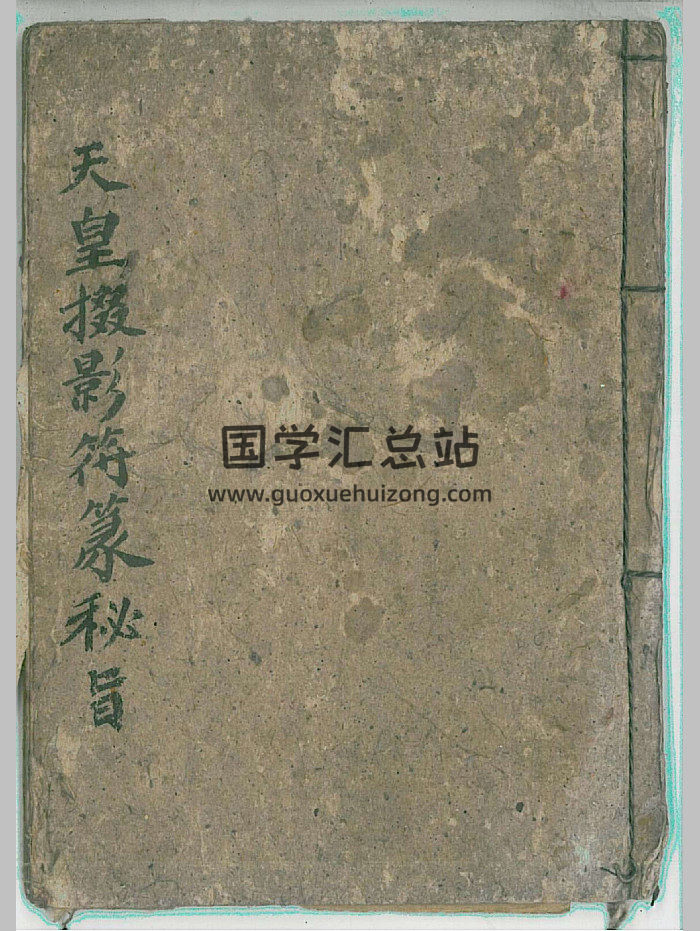 天皇掇影符篆秘旨
国学汇总站
www.guoxuehuizong.com